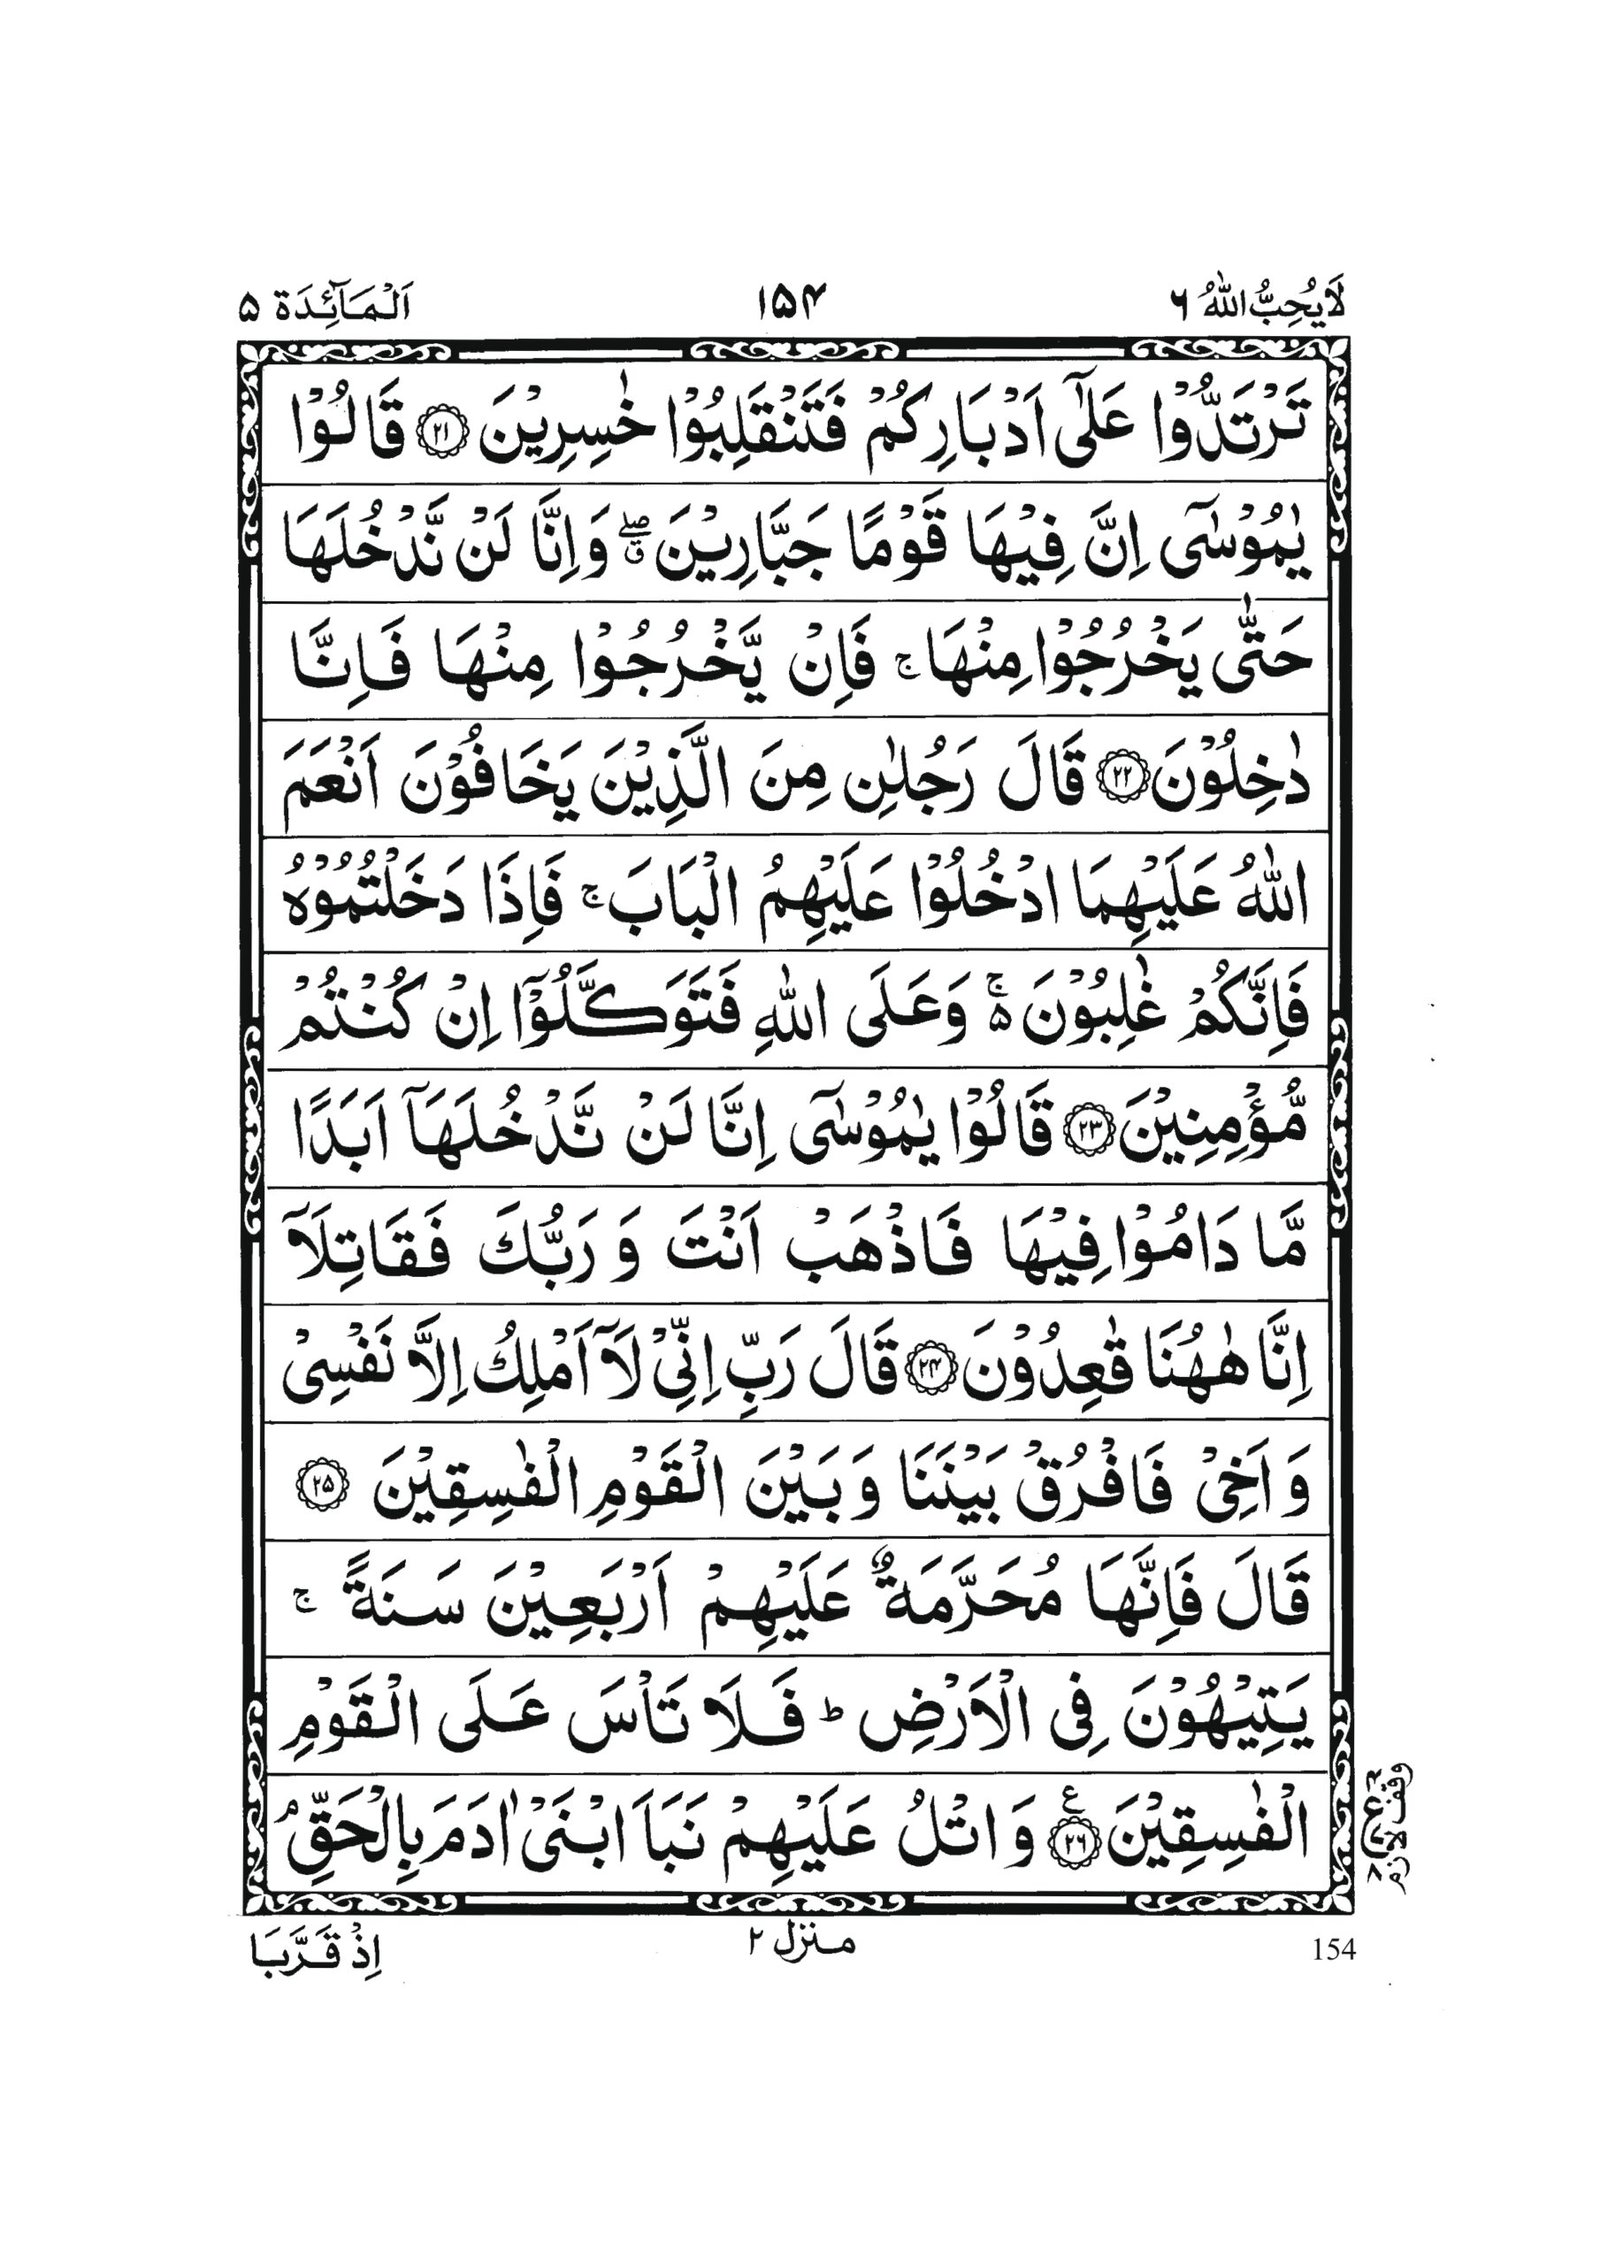 لَا يُحِبُّ اللّٰهُ ٦ ١٥۴ اَلْمَآئِدَة ۵
تَرْتَدُّوْا عَلٰٓى اَدْبَارِكُمْ فَتَنْقَلِبُوْا خٰسِرِيْنَ ﴿۲۱﴾ قَالُوْا
يٰمُوْسٰٓى اِنَّ فِيْهَا قَوْمًا جَبَّارِيْنَ ۖۗ وَاِنَّا لَنْ نَّدْخُلَهَا
حَتّٰى يَخْرُجُوْا مِنْهَا ۚ فَاِنْ يَّخْرُجُوْا مِنْهَا فَاِنَّا
دٰخِلُوْنَ ﴿۲۲﴾ قَالَ رَجُلٰنِ مِنَ الَّذِيْنَ يَخَافُوْنَ اَنْعَمَ
اللّٰهُ عَلَيْهِمَا ادْخُلُوْا عَلَيْهِمُ الْبَابَ ۚ فَاِذَا دَخَلْتُمُوْهُ
فَاِنَّكُمْ غٰلِبُوْنَ ۚ۬ وَعَلَى اللّٰهِ فَتَوَكَّلُوْٓا اِنْ كُنْتُمْ
مُّؤْمِنِيْنَ ﴿۲۳﴾ قَالُوْا يٰمُوْسٰٓى اِنَّا لَنْ نَّدْخُلَهَآ اَبَدًا
مَّا دَامُوْا فِيْهَا فَاذْهَبْ اَنْتَ وَرَبُّكَ فَقَاتِلَآ
اِنَّا هٰهُنَا قٰعِدُوْنَ ﴿۲۴﴾ قَالَ رَبِّ اِنِّيْ لَآ اَمْلِكُ اِلَّا نَفْسِيْ
وَاَخِيْ فَافْرُقْ بَيْنَنَا وَبَيْنَ الْقَوْمِ الْفٰسِقِيْنَ ﴿۲۵﴾
قَالَ فَاِنَّهَا مُحَرَّمَةٌ عَلَيْهِمْ اَرْبَعِيْنَ سَنَةً ۚ
يَتِيْهُوْنَ فِى الْاَرْضِ ؕ فَلَا تَاْسَ عَلَى الْقَوْمِ
الْفٰسِقِيْنَ ﴿۲۶﴾ ع وَاتْلُ عَلَيْهِمْ نَبَاَ ابْنَيْ اٰدَمَ بِالْحَقِّ ۘ
وقف لازم
154 منزل ۲ اِذْ قَرَّبَا